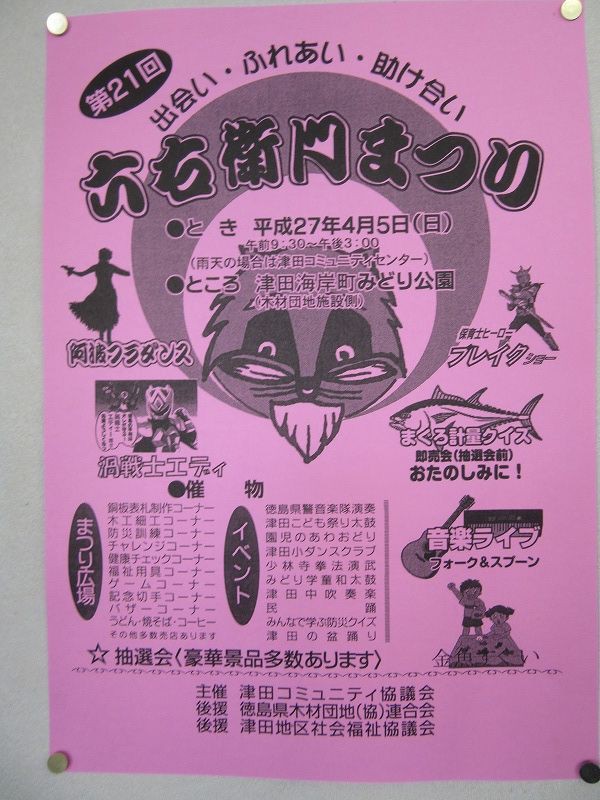 第21回
出会い・ふれあい・助け合い
六右衛門まつり
●とき 平成27年4月5日(日)
午前9:30～午後3:00
(雨天の場合は津田コミュニティセンター)
●ところ 津田海岸町みどり公園
(木材団地施設側)
阿波フラダンス
保育士ヒーロー
ブレイクショー
渦戦士エディ
まぐろ計量クイズ
即売会(抽選会前)
おたのしみに!
●催物
まつり広場
銅板表札制作コーナー
木工細工コーナー
防災訓練コーナー
チャレンジコーナー
健康チェックコーナー
福祉用具コーナー
ゲームコーナー
記念切手コーナー
バザーコーナー
うどん・焼そば・コーヒー
その他多数売店あります
イベント
徳島県警音楽隊演奏
津田こども祭り太鼓
園児のあわおどり
津田小ダンスクラブ
少林寺拳法演武
みどり学童和太鼓
津田中吹奏楽
民踊
みんなで学ぶ防災クイズ
津田の盆踊り
音楽ライブ
フォーク&スプーン
金魚すくい
☆抽選会〈豪華景品多数あります〉
主催 津田コミュニティ協議会
後援 徳島県木材団地(協)連合会
後援 津田地区社会福祉協議会